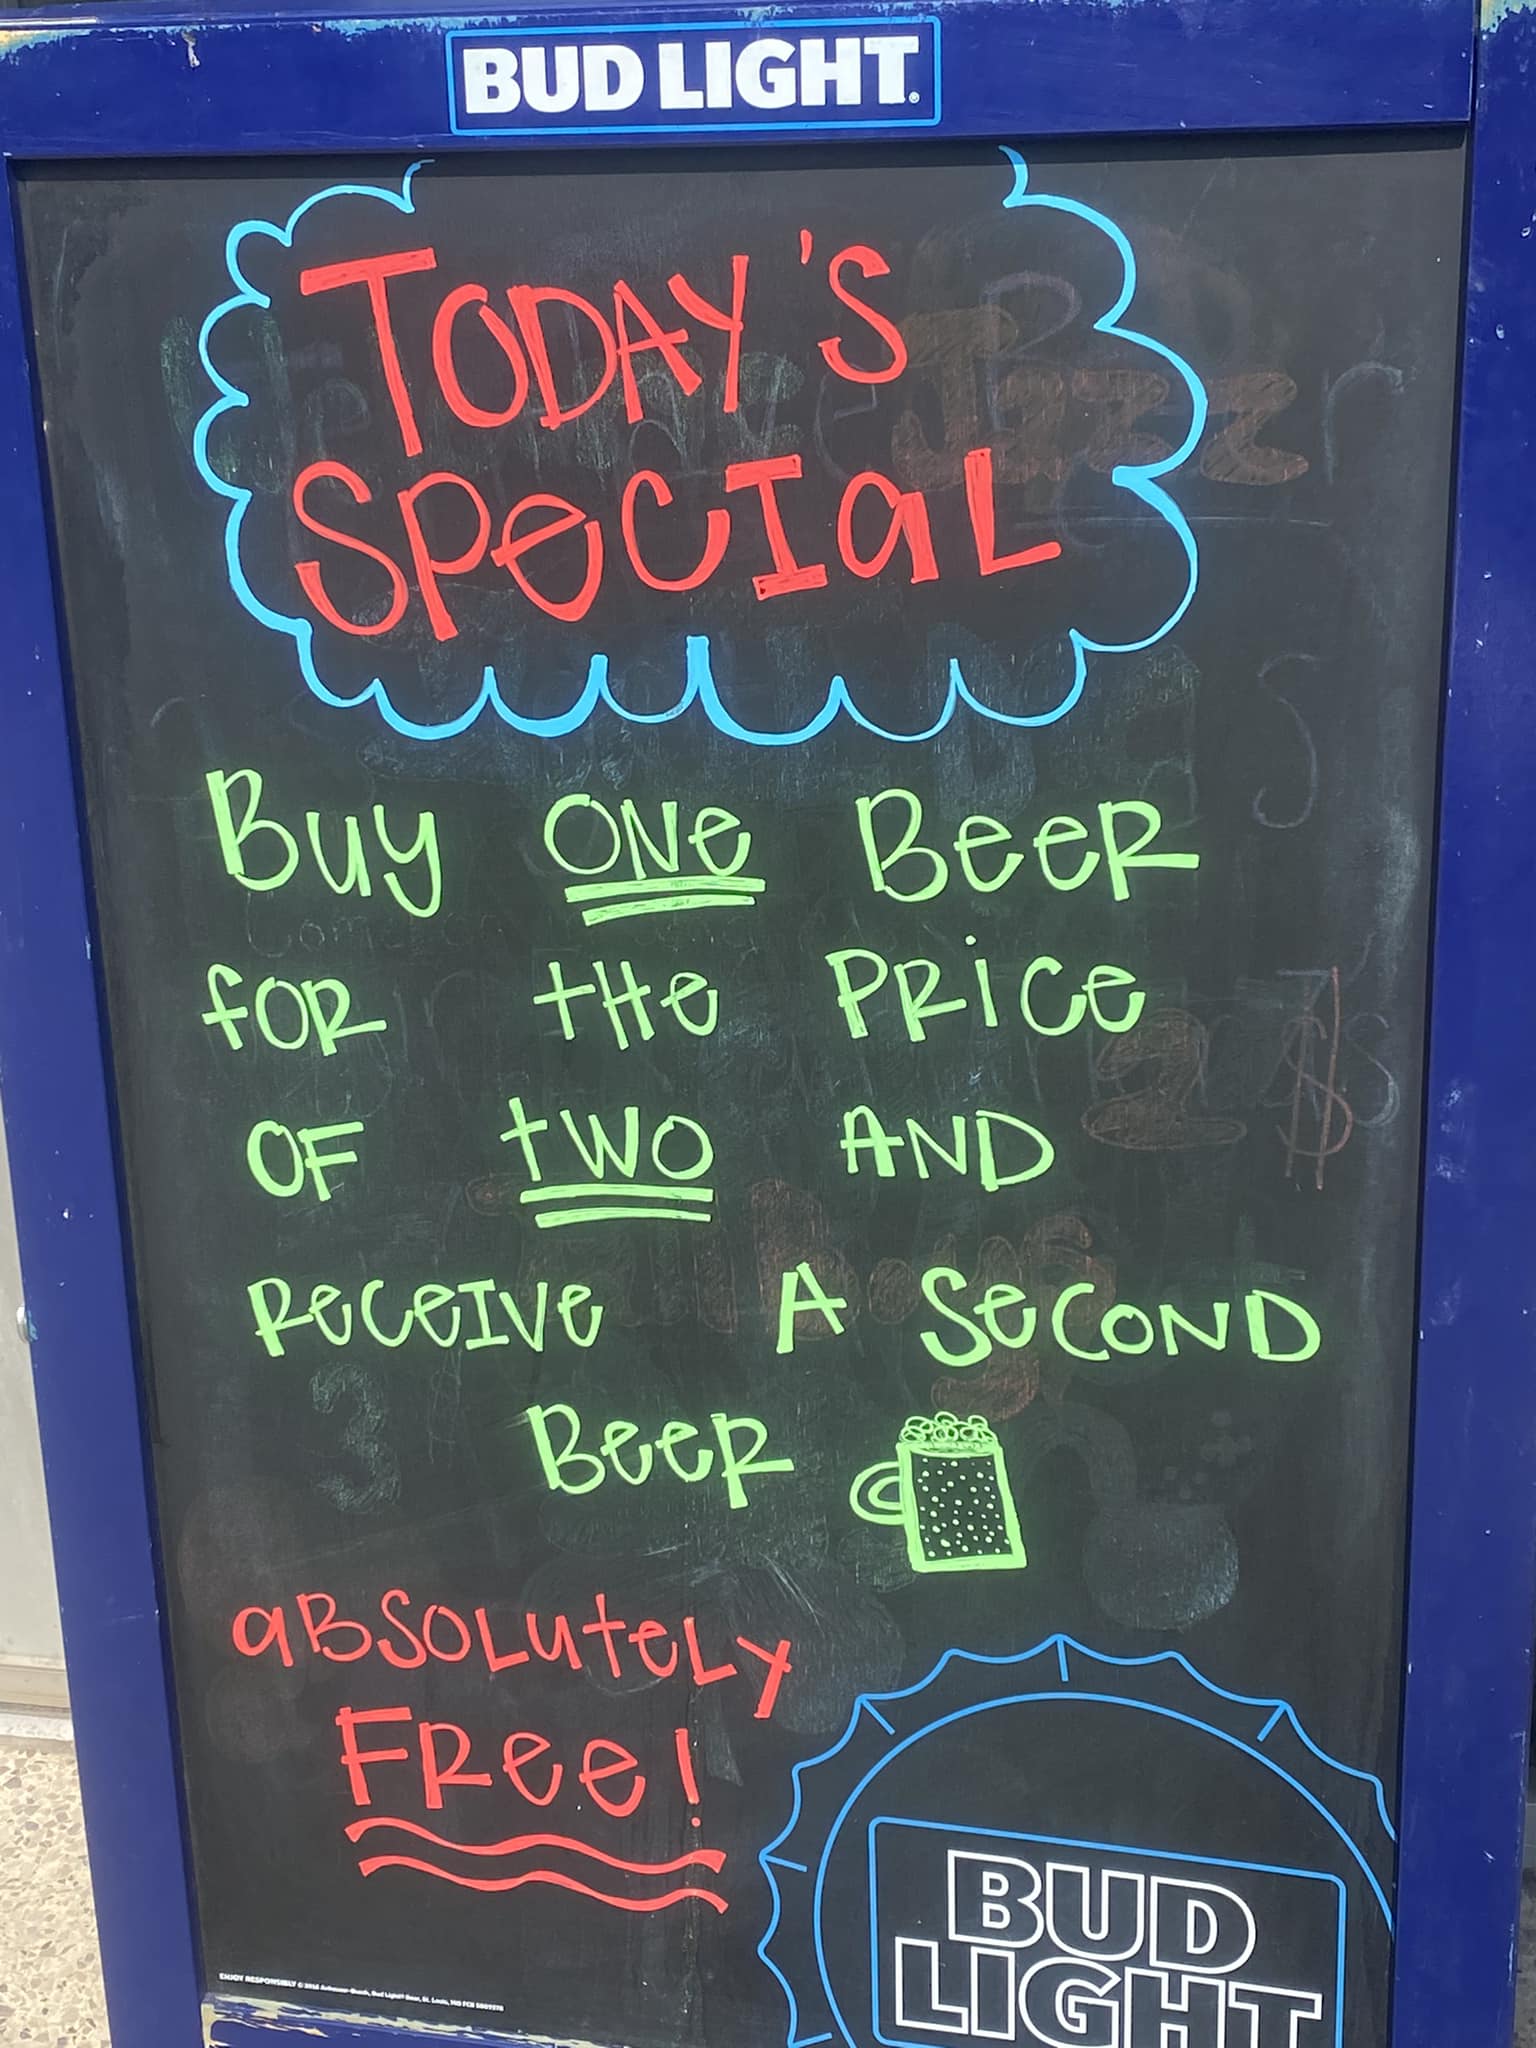 BUD LIGHT.
TODAY'S
SPECIAL
BUY ONE BEER
FOR THE PRICE
OF TWO AND
RECEIVE A SECOND
BEER
ABSOLUTELY
FREE!
BUD
LIGHT
ENJOY RESPONSIBLY